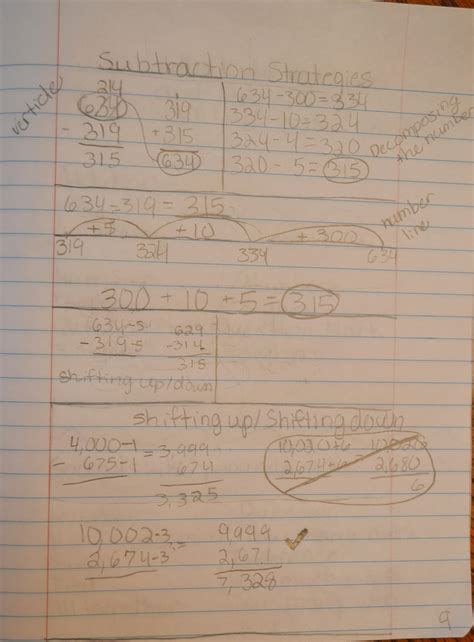 Subtraction Strategies
verticle
214
634
- 319
315
1
319
+ 315
634
634 - 300 = 334
334 - 10 = 324
324 - 4 = 320
320 - 5 = 315
Decomposing
the number
634 - 319 = 315
number
line
+5 +10 + 300
319 324 334 634
300 + 10 + 5 = 315
634-5 629
- 319-5 -314
315
shifting up/down
shifting up/Shifting down
4,000-1 = 3,999
- 675-1 674
3,325
2,674+6 2,680
6
10,002-3 = 9,999
2,674-3 2,671
7,328
9